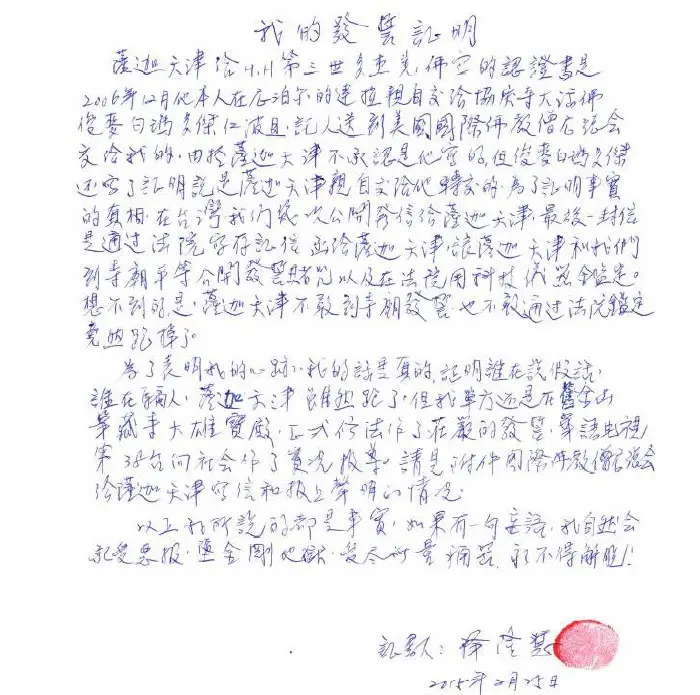 我的發誓証明
薩迦天津給H.H.第三世多杰羌佛寫的認證書是
2006年12月他本人在尼泊尔的達拉親自交给協庆寺大活佛
俊麥白瑪多傑仁波且,託人送到美國國際佛教僧尼總会
交给我的,由於薩迦天津不承認是他寫的,但俊麥白瑪多傑
还寫了証明說是薩迦天津親自交给他轉交的,為了証明事實
的真相,在台灣我们幾次公開發信给薩迦天津,最後一封信
是通过法院寄存証信函给薩迦天津,讓薩迦天津和我們
到寺廟平等公開發誓賭咒以及在法院用科技儀器鑑定。
想不到的是,薩迦天津不敢到寺廟發誓,也不敢通过法院鑑定
竟然跑掉了。
為了表明我的心跡,我的話是真的,証明誰在說假話,
誰在騙人,薩迦天津雖然跑了,但我單方还是在舊金山
華藏寺大雄寶殿,正式修法作了莊嚴的發誓,華語电視
第38台向社会作了實況报導。請見附件國際佛教僧尼總会
给薩迦天津寫信和报上聲明的情况。
以上我所說的都是事實,如果有一句妄語,我自然会
承受惡报,墮金剛地獄,受尽 量痛苦,永不得解脫!
証 人:釋隆慧
2015年2月25日